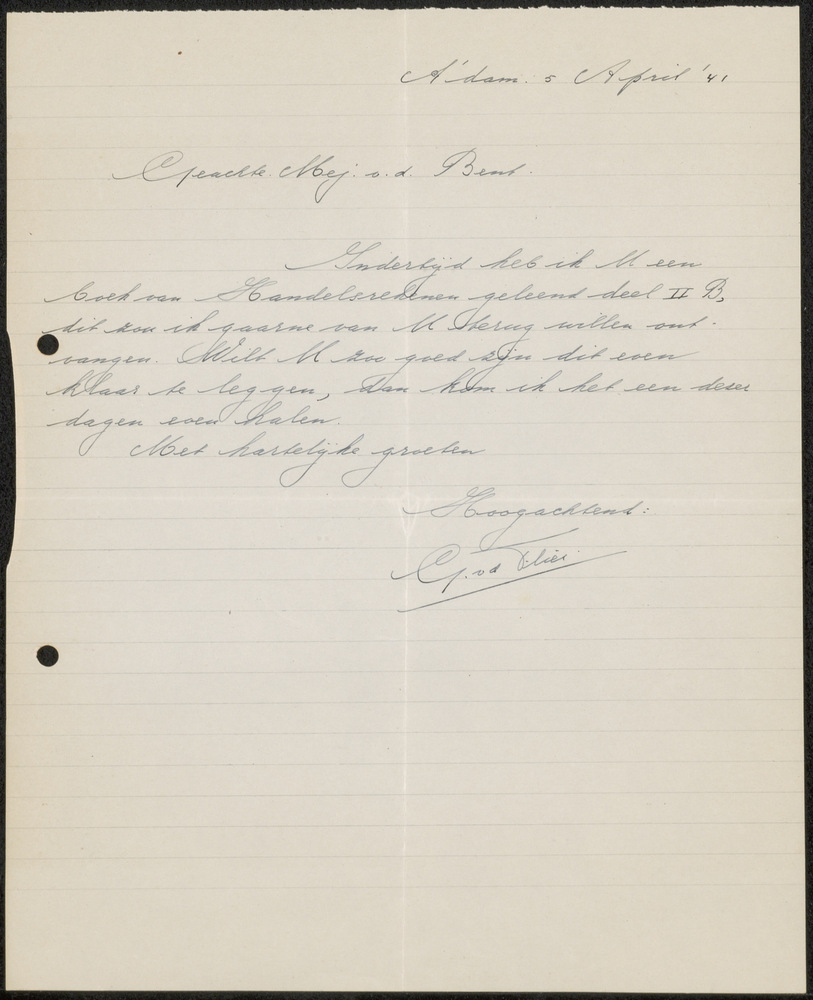 A'dam. 5 April '41
Geachte Mej. v. d. Bent.
Indertijd heb ik U een
boek van Handelsrekenen geleend deel II B,
dit zou ik gaarne van U terug willen ont-
vangen. Wilt U zoo goed zijn dit even
klaar te leggen, dan kom ik het een dezer
dagen even halen.
Met hartelijke groeten
Hoogachtend:
G. v d